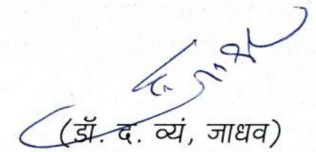 (डॉ. द. व्यं, जाधव)